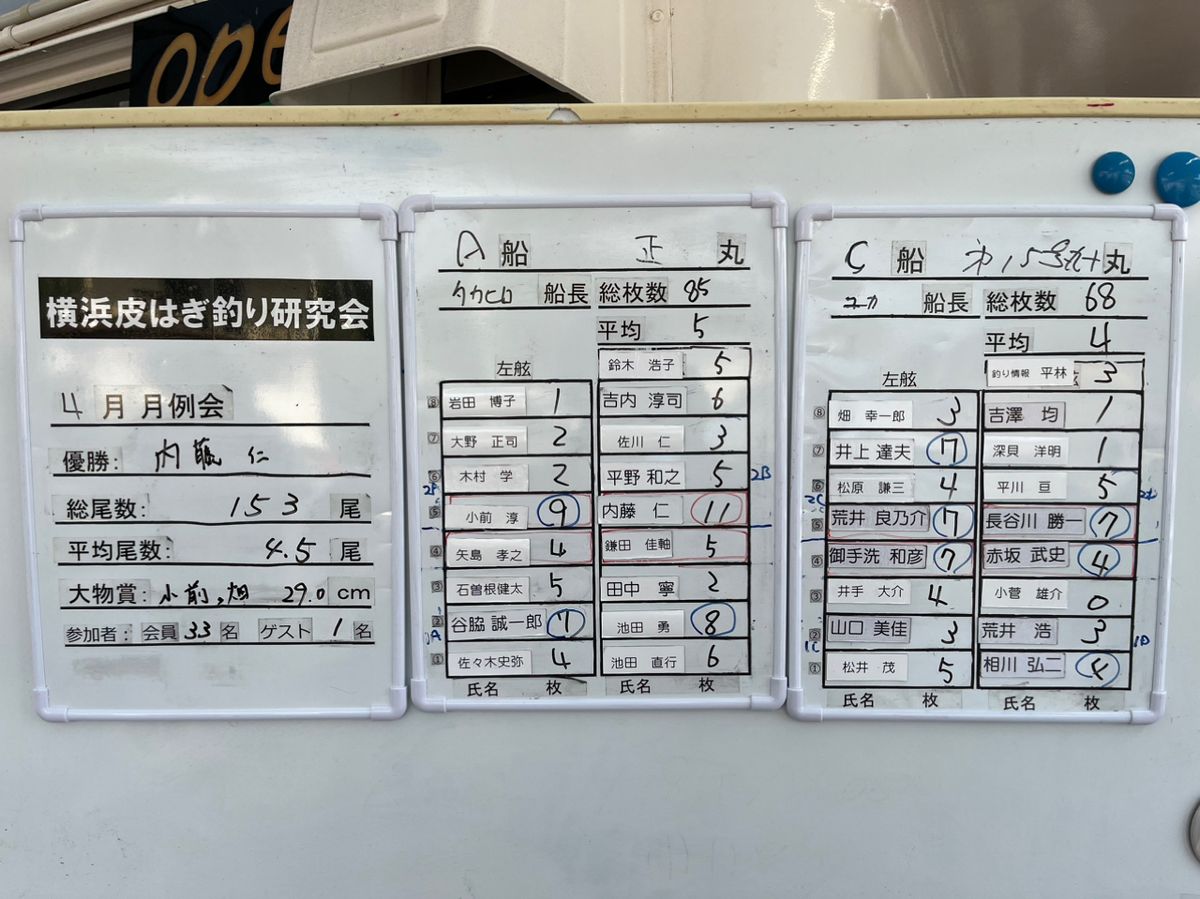 ope
横浜皮はぎ釣り研究会
4月月例会
優勝: 内藤 仁
総尾数: 153 尾
平均尾数: 4.5 尾
大物賞: 小前,畑 29.0 cm
参加者: 会員 33 名 ゲスト 1 名
A 船 正 丸
タカヒロ 船長 総枚数 85
平均 5
左舷 鈴木 浩子 5
⑧ 岩田 博子 1 吉内 淳司 6
⑦ 大野 正司 2 佐川 仁 3
⑥ 木村 学 2 平野 和之 5 2B
⑤ 小前 淳 9 内藤 仁 11
④ 矢島 孝之 4 鎌田 佳軸 5
③ 石曽根健太 5 田中 寧 2
② 谷脇 誠一郎 7 池田 勇 8
① 佐々木史弥 4 池田 直行 6
氏名 枚 氏名 枚
C 船 丸
ユカ 船長 総枚数 68
平均 4
左舷 釣り情報 平林 3
⑧ 畑 幸一郎 3 吉澤 均 1
⑦ 井上 達夫 7 深貝 洋明 1
⑥ 松原 謙三 4 平川 亘 5
2C ⑤ 荒井 良乃介 7 長谷川 勝一 7
④ 御手洗 和彦 7 赤坂 武史 4
③ 井手 大介 4 小菅 雄介 0
② 山口 美佳 3 荒井 浩 3
1C ① 松井 茂 5 相川 弘二 4
氏名 枚 氏名 枚